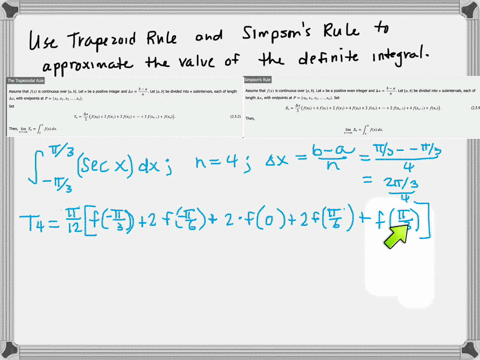 Use Trapezoid Rule and Simpson's Rule to
approximate the value of the definite integral.
The Trapezoidal Rule
Assume that f(x) is continuous over [a, b]. Let n be a positive integer and Δx = (b−a)/n. Let [a, b] be divided into n subintervals, each of length
Δx, with endpoints at P = {x₀, x₁, x₂, …, xₙ}.
Set
Then,
Simpson's Rule
Assume that f(x) is continuous over [a, b]. Let n be a positive even integer and Δx = (b−a)/n. Let [a, b] be divided into n subintervals, each of
length Δx, with endpoints at P = {x₀, x₁, x₂, …, xₙ}. Set
Then,
∫_{-π/3}^{π/3} (sec x) dx; n=4; Δx = (b-a)/n = (π/3 - -π/3)/4
= (2π/3)/4
T₄ = π/12 [f(-π/3) + 2 f(-π/6) + 2·f(0) + 2 f(π/6) + f(π/3)]